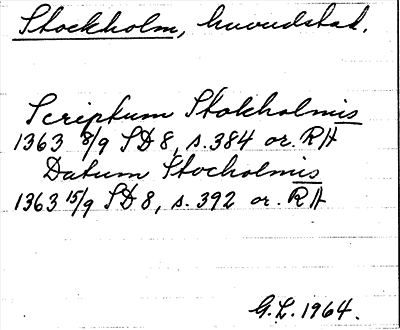 Stockholm, huvudstad.
Scriptum Stokholmis
1363 8/9 SD 8, s. 384 or. RA
Datum Stocholmis
1363 15/9 SD 8, s. 392 or. RA
G.L. 1964.